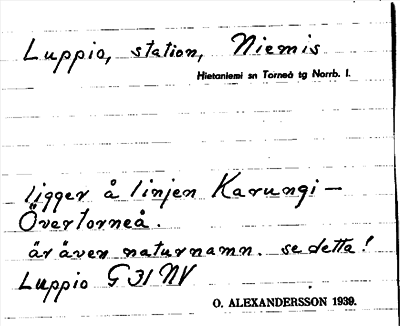 Luppio, station, Niemis
Hietaniemi sn Torneå tg Norrb. l.
ligger å linjen Karungi –
Övertorneå.
är även naturnamn. se detta!
Luppio G 31 NV
O. ALEXANDERSSON 1939.